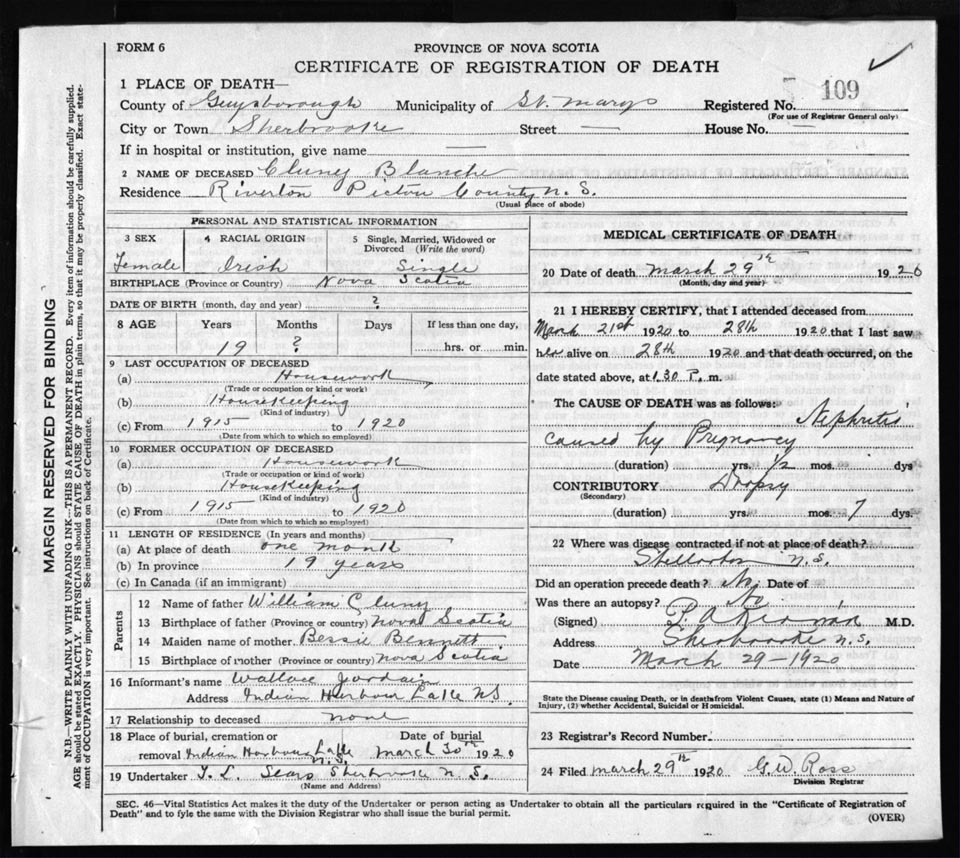 FORM 6
PROVINCE OF NOVA SCOTIA
CERTIFICATE OF REGISTRATION OF DEATH
109
1 PLACE OF DEATH—
County of Guysborough Municipality of St. Marys Registered No.
(For use of Registrar General only)
City or Town Sherbrooke Street — House No. —
If in hospital or institution, give name —
2 NAME OF DECEASED Cluny Blanche
Residence Riverton Pictou County N. S.
(Usual place of abode)
PERSONAL AND STATISTICAL INFORMATION
3 SEX 4 RACIAL ORIGIN 5 Single, Married, Widowed or Divorced (Write the word)
Female Irish Single
BIRTHPLACE (Province or Country) Nova Scotia
DATE OF BIRTH (month, day and year) ?
8 AGE Years Months Days If less than one day,
19 ? hrs. or min.
9 LAST OCCUPATION OF DECEASED
(a) Housework
(Trade or occupation or kind or work)
(b) Housekeeping
(Kind of industry)
(c) From 1915 to 1920
(Date from which to which so employed)
10 FORMER OCCUPATION OF DECEASED
(a) Housework
(Trade or occupation or kind of work)
(b) Housekeeping
(Kind of industry)
(c) From 1915 to 1920
(Date from which to which so employed)
11 LENGTH OF RESIDENCE (In years and months)
(a) At place of death one month
(b) In province 19 years
(c) In Canada (if an immigrant)
Parents
12 Name of father William Cluny
13 Birthplace of father (Province or country) Nova Scotia
14 Maiden name of mother Bessie Bennett
15 Birthplace of mother (Province or country) Nova Scotia
16 Informant's name Wallace Jordain
Address Indian Harbour Lake N S
17 Relationship to deceased none
18 Place of burial, cremation or Date of burial
removal Indian Harbour Lake N. S. March 30th 1920
19 Undertaker T. L. Sears Sherbrooke N. S.
(Name and Address)
MEDICAL CERTIFICATE OF DEATH
20 Date of death March 29th 1920
(Month, day and year)
21 I HEREBY CERTIFY, that I attended deceased from
March 21st 1920 to 28th 1920 that I last saw
her alive on 28th 1920 and that death occurred, on the
date stated above, at 1.30 P. m.
The CAUSE OF DEATH was as follows: Nephritis
caused by Pregnancy
(duration) yrs. 1/2 mos. dys
CONTRIBUTORY Dropsy
(Secondary)
(duration) yrs. mos. 7 dys.
22 Where was disease contracted if not at place of death?
Stellarton N.S.
Did an operation precede death? No. Date of
Was there an autopsy? No
(Signed) M.D.
Address Sherbrooke N.S.
Date March 29-1920
State the Disease causing Death, or in deaths from Violent Causes, state (1) Means and Nature of
Injury, (2) whether Accidental, Suicidal or Homicidal.
23 Registrar's Record Number
24 Filed March 29th 1920 G. W. Ross
Division Registrar
SEC. 46—Vital Statistics Act makes it the duty of the Undertaker or person acting as Undertaker to obtain all the particulars required in the "Certificate of Registration of
Death" and to fyle the same with the Division Registrar who shall issue the burial permit.
(OVER)
MARGIN RESERVED FOR BINDING
N.B.—WRITE PLAINLY WITH UNFADING INK—THIS IS A PERMANENT RECORD. Every item of information should be carefully supplied.
AGE should be stated EXACTLY. PHYSICIANS should STATE CAUSE OF DEATH in plain terms, so that it may be properly classified. Exact state-
ment of OCCUPATION is very important. See instructions on back of Certificate.